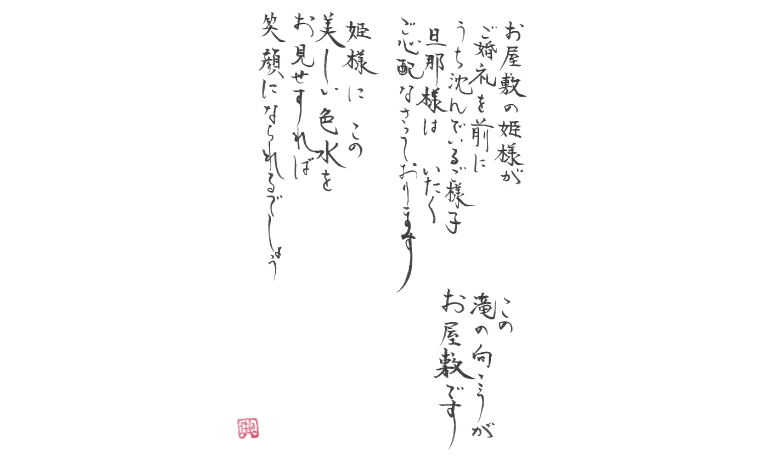 お屋敷の姫様が
ご婚礼を前に
うち沈んでいるご様子
旦那様は いたく
ご心配なさっております
姫様に この
美しい色水を
お見せすれば
笑顔になられるでしょう
この
滝の向こうが
お屋敷です